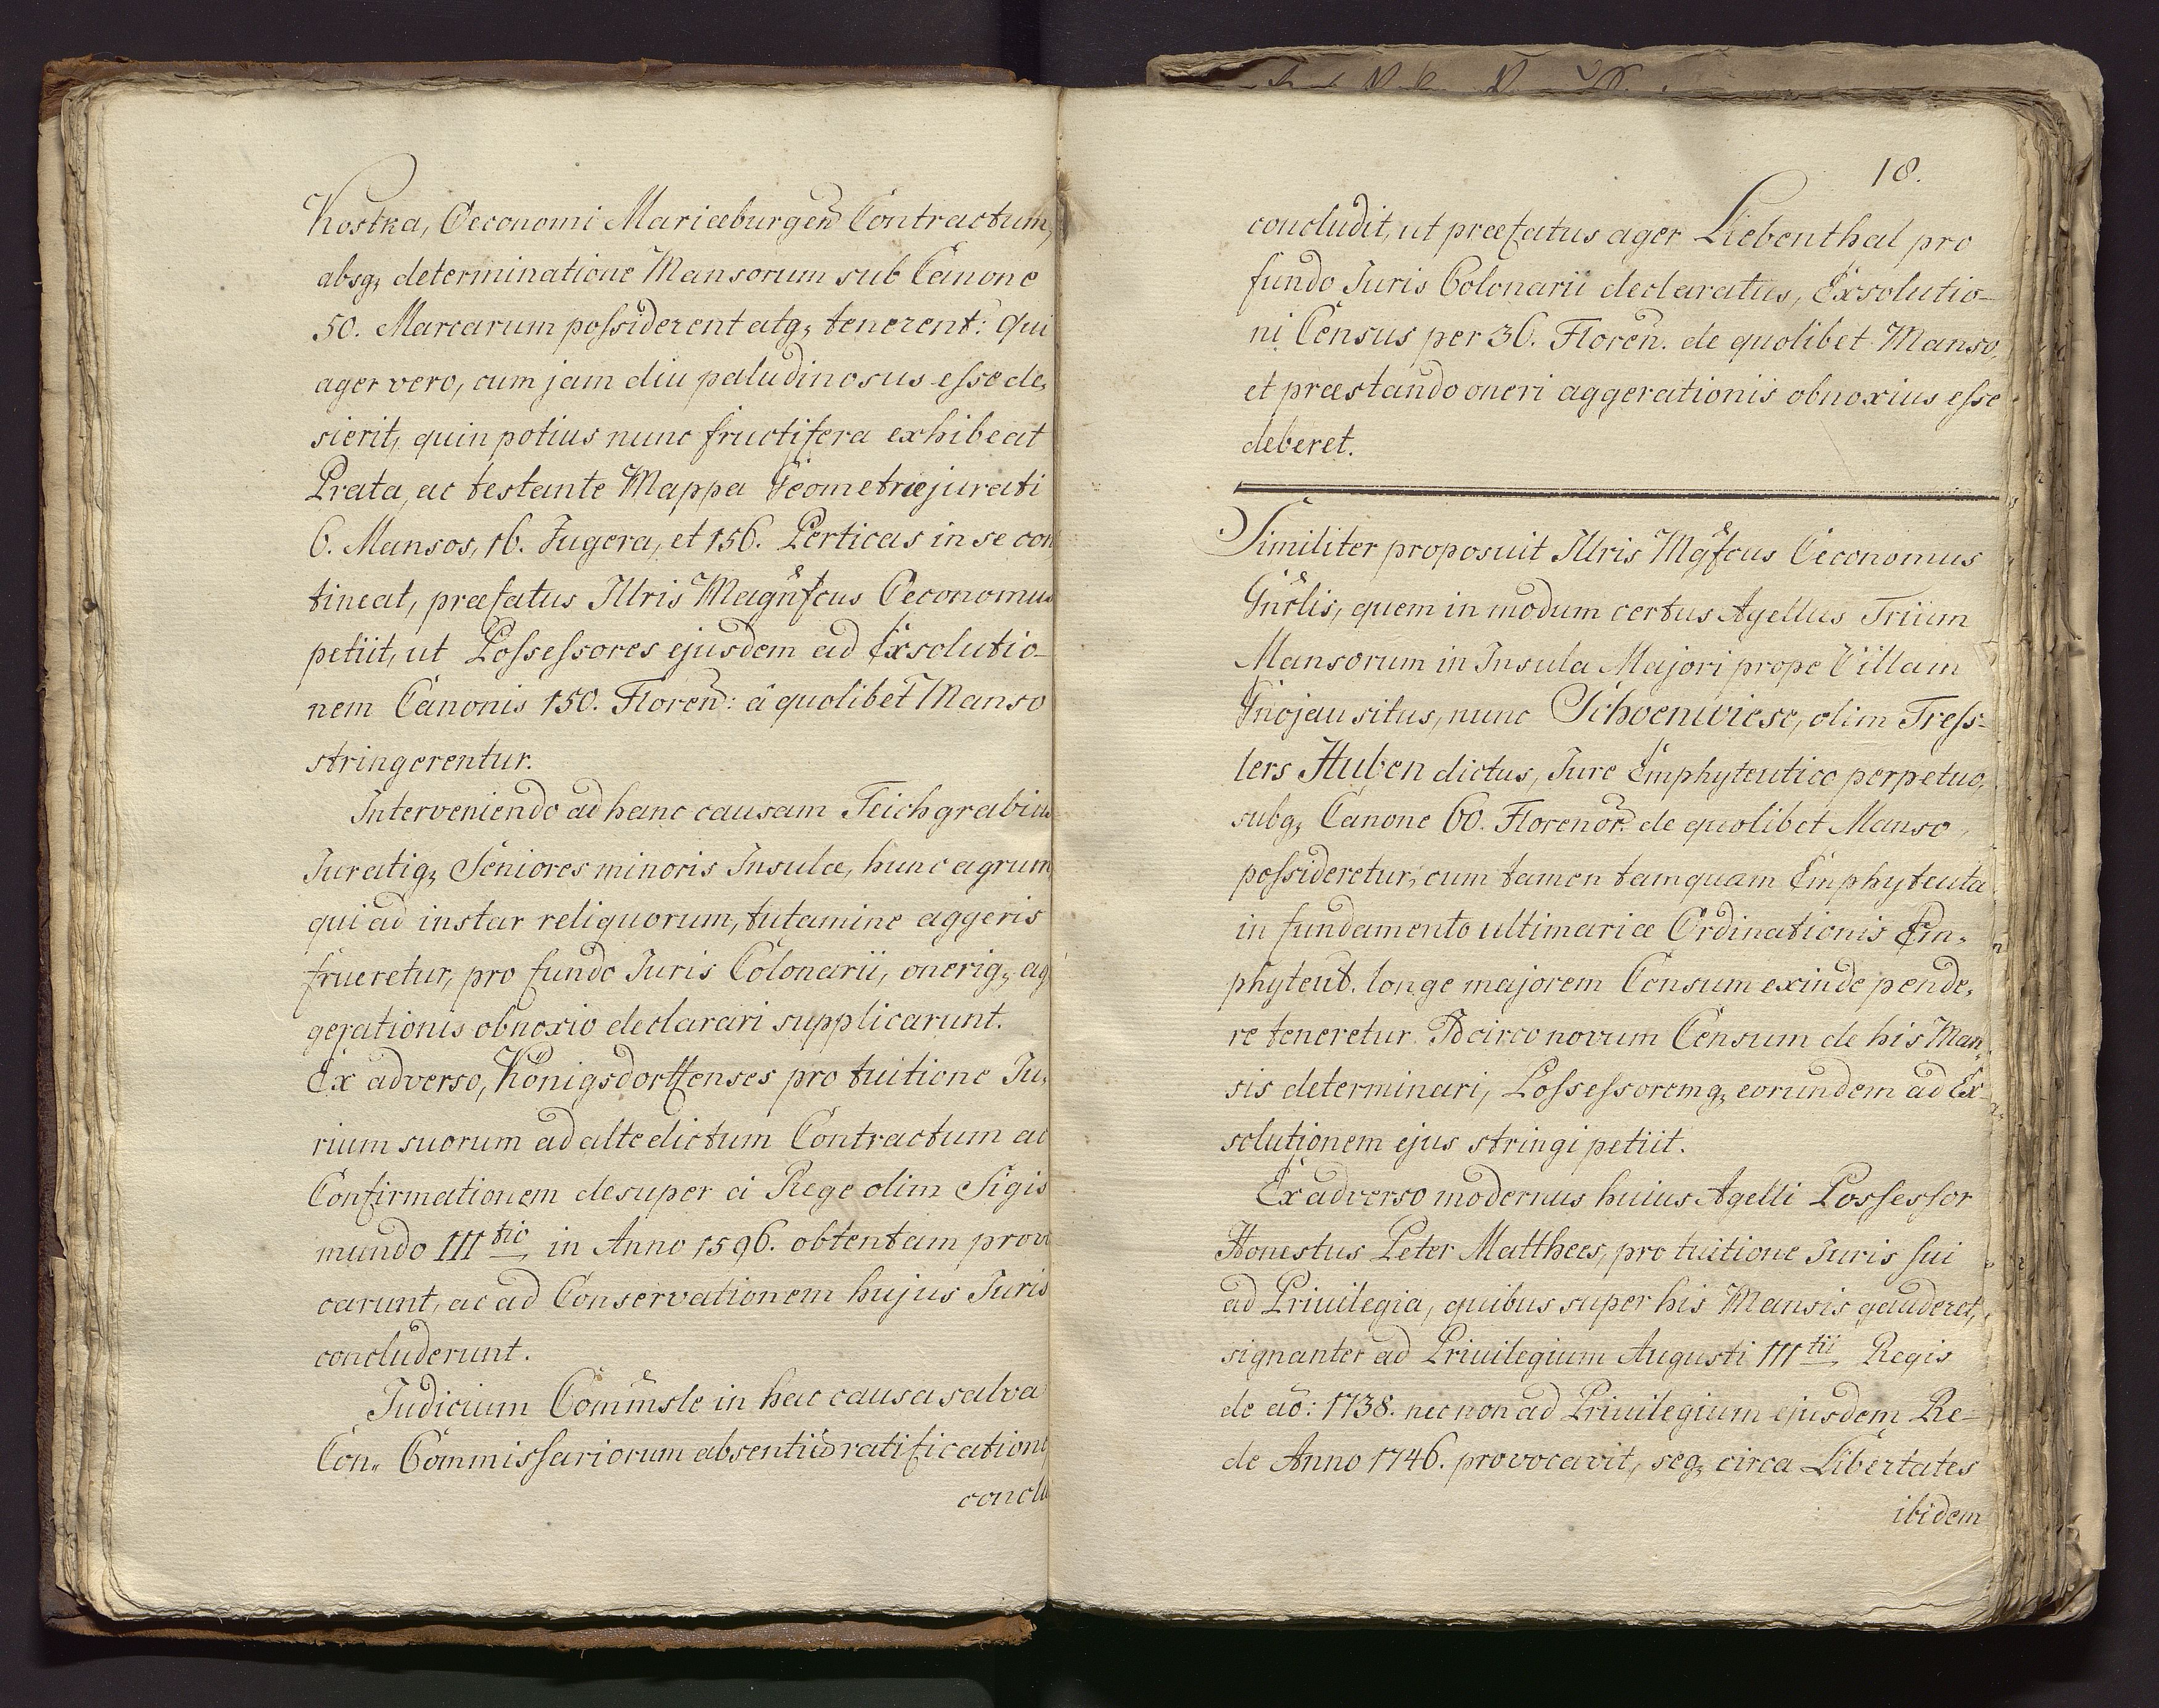 Kostka, Oeconomi Mariæburgen Contractum,
absq; determinatione Mansorum sub Canone
50. Marcarum possiderent atq; tenerent: Qui
ager vero, cum jam diu paludinosus esse de,
sierit, quin potius nunc fructifera exhibeat
Prata, ac testante Mappa Geometræ jurati
6. Mansos, 16. Jugera, et 156. Perticas in se con
tineat, præfatus Illris Magnfcus Oeconomus
petiit, ut Possessores ejusdem ad Exsolutio-
nem Canonis 150. Floren: à quolibet Manso
stringerentur.
Interveniendo ad hanc causam Teichgrabius
Juratiq; Seniores minoris Insulæ, hunc agrum
qui ad instar reliquorum, tutamine aggeris
frueretur, pro fundo Juris Colonarii, oneriq; ag
gerationis obnoxio declarari supplicarunt.
Ex adverso, Königsdorffenses pro tuitione Ju,
rium suorum ad alte dictum Contractum ac
Confirmationem desuper a Rege olim Sigis
mundo III tio in Anno 1596. obtentam provo
carunt, ac ad Conservationem hujus Juris
concluderunt.
Judicium Commsle in hac causa salva
Con„ Commissariorum absentiũ ratificatione
conclu
18.
concludit, ut præfatus ager Liebenthal pro
fundo Juris Colonarii declaratus, Exsolutio-
ni Census per 36. Floren. de quolibet Manso,
et præstando oneri aggerationis obnoxius esse
deberet.
Similiter proposuit Illris Mgfcus Oeconomus
Gnrlis, quem in modum certus Agellus Trium
Mansorum in Insula Majori prope Villam
Gnojau situs, nunc Schoenwiese, olim Tress-
lers Huben dictus, Jure Emphyteutico perpetuo,
subq; Canone 60. Florenor. de quolibet Manso,
possideretur, cum tamen tamquam Emphyteuta
in fundamento ultimariæ Ordinationis Em-
phyteut. longe majorem Censum exinde pende,
re teneretur. Idcirco novum Censum de his Man,
sis determinari, Possessoremq; eorundem ad Ex-
solutionem ejus stringi petiit.
Ex adverso modernus huius Agelli Possessor
Honestus Peter Matthees, pro tuitione Juris sui
ad Priuilegia, quibus super his Mansis gauderet,
signanter ad Priuilegium Augusti III tii Regis
de aõ: 1738. nec non ad Priuilegium ejusdem Re-
de Anno 1746. provocavit, seq; circa Libertates
ibidem